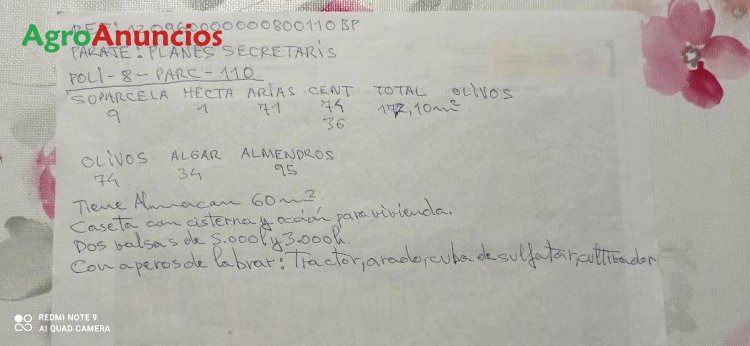 AgroAnuncios
PARAJE: PLANES SECRETARIS
POLI-8-PARC-110
SUPARCELA HECTA ARIAS CENT TOTAL OLIVOS
9 1 71 74
36
OLIVOS ALGAR ALMENDROS
74 34 95
Tiene Almacan 60m2
Caseta con cisterna y acción para vivienda.
Dos balsas de 5.000l y 3.000l.
Con aperos de labrar: Tractor, arado, cuba de sulfatar, cultibador
REDMI NOTE 9
AI QUAD CAMERA